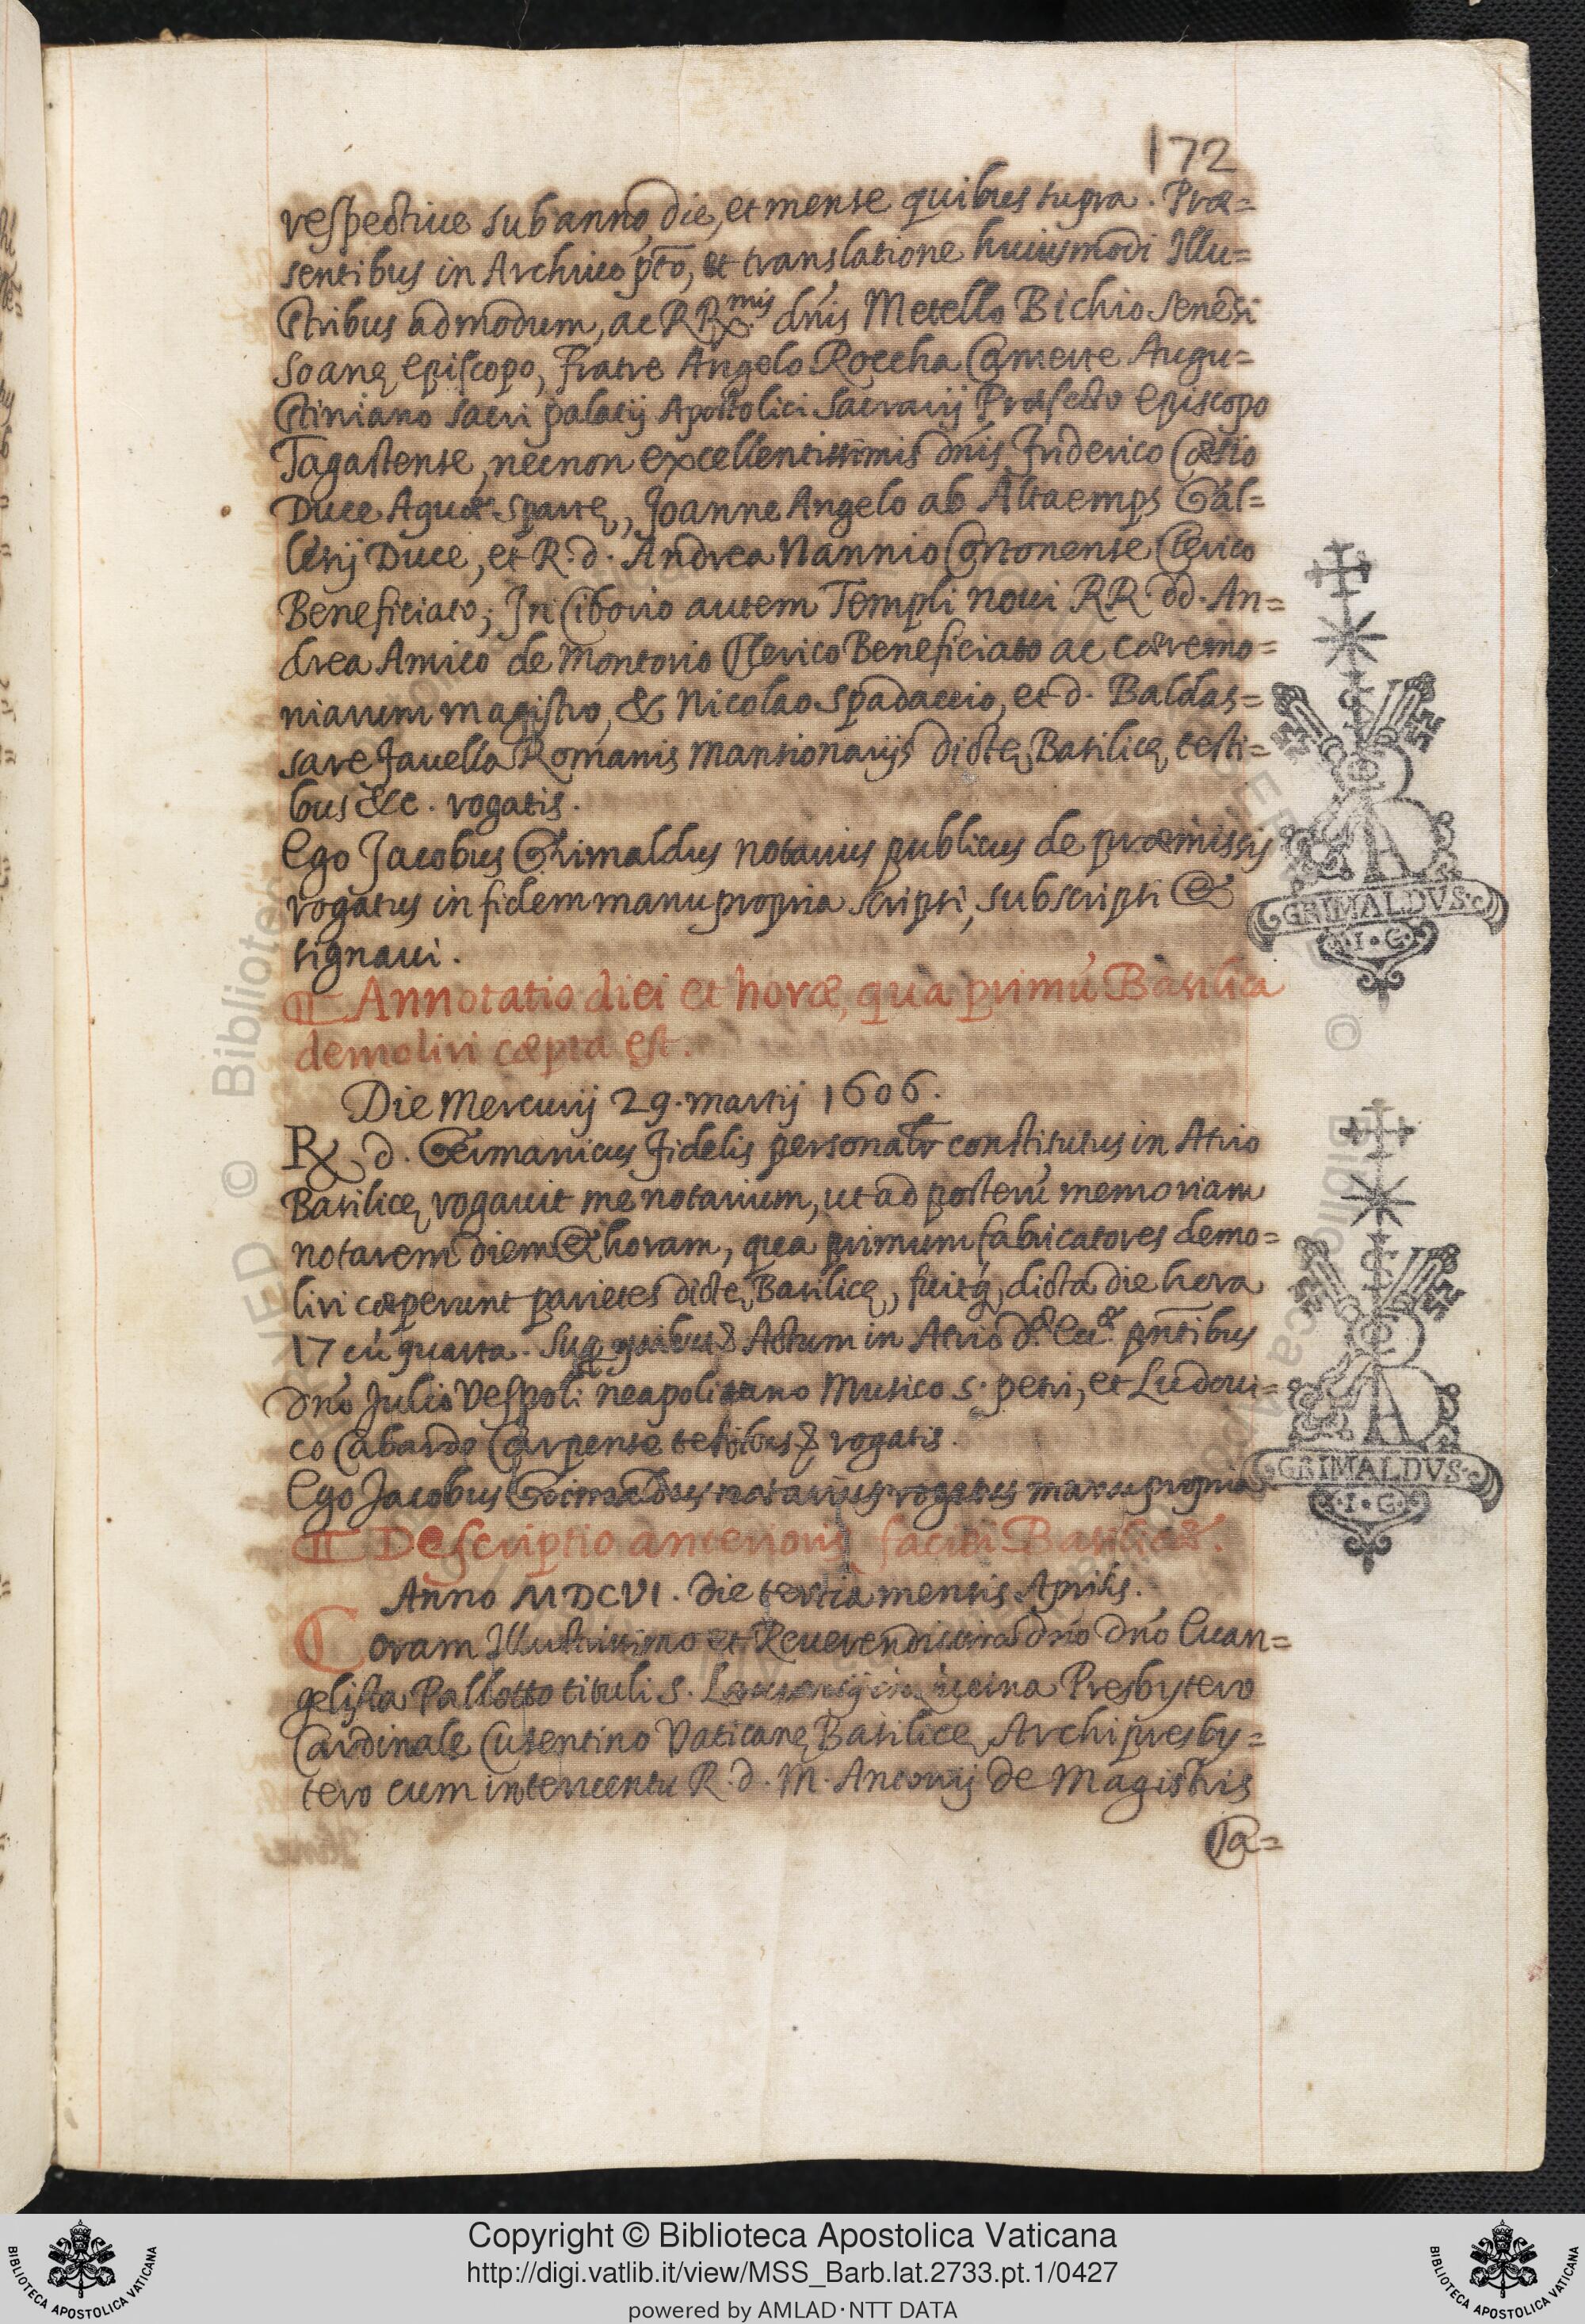 172
respectiue sub anno, die, et mense quibus supra. Præ=
sentibus in Archiuo pto, et translatione huiusmodi Illu=
stribus admodum, ac RR.mis dnis Metello Bichio Senesi
Soanę episcopo, Fratre Angelo Roccha Camerte Augu=
stiniano sacri palatij Apostolici Sacrarij Præfecto episcopo
Tagastense, necnon excellentissimis dnis Friderico Cæsio
Duce Aquæ spartę, Joanne Angelo ab Altaemps Gal=
lesij Duce, et R. d. Andrea Nannio Cortonense Clerico
Beneficiato; In Ciborio autem Templi noui RR dd. An=
drea Amico de Montorio Clerico Beneficiato ac cæremo=
niarum magistro, & Nicolao Spadaccio, et d. Baldas=
sare Jauella Romanis Mansionarijs dictę Basilicę testi=
bus &c. rogatis.
Ego Jacobus Grimaldus notarius publicus de præmissis
rogatus in fidem manu propria scripsi, subscripsi &
signaui.
GRIMALDVS
I.G.
Annotatio diei et horæ, qua primū Basilica
demoliri cæpta est.
Die Mercurij 29. martij 1606.
R. d. Germanicus Fidelis personalr constitutus in Atrio
Basilicę rogauit me notarium, ut ad posterū memoriam
notarem diem & horam, qua primum fabricatores demo=
liri cæperunt parietes dictę Basilicę, fuitq, dicta die hora
17 cū quarta. Sup quibus Actum in Atrio dæ Eccæ pntibus
dno Julio Vespoli neapolitano Musico s. petri, et Ludoui=
co Cabardo Carpense testibus rogatis.
Ego Jacobus Grimaldus notarius rogatus manu propria
GRIMALDVS
I.G.
Descriptio anterioris faciei Basilicæ.
Anno MDCVI. die tertia mensis Aprilis.
Coram Illustrissimo et Reuerendissimo dno dno Euan=
gelista Pallotto tituli S. Laurentij in Lucina Presbytero
Cardinale Cusentino Vaticanę Basilicę Archipresby=
tero cum interuentu R. d. M. Antonij de Magistris
Ca=
Copyright © Biblioteca Apostolica Vaticana
http://digi.vatlib.it/view/MSS_Barb.lat.2733.pt.1/0427
powered by AMLAD·NTT DATA
BIBLIOTECA APOSTOLICA VATICANA
BIBLIOTECA APOSTOLICA VATICANA